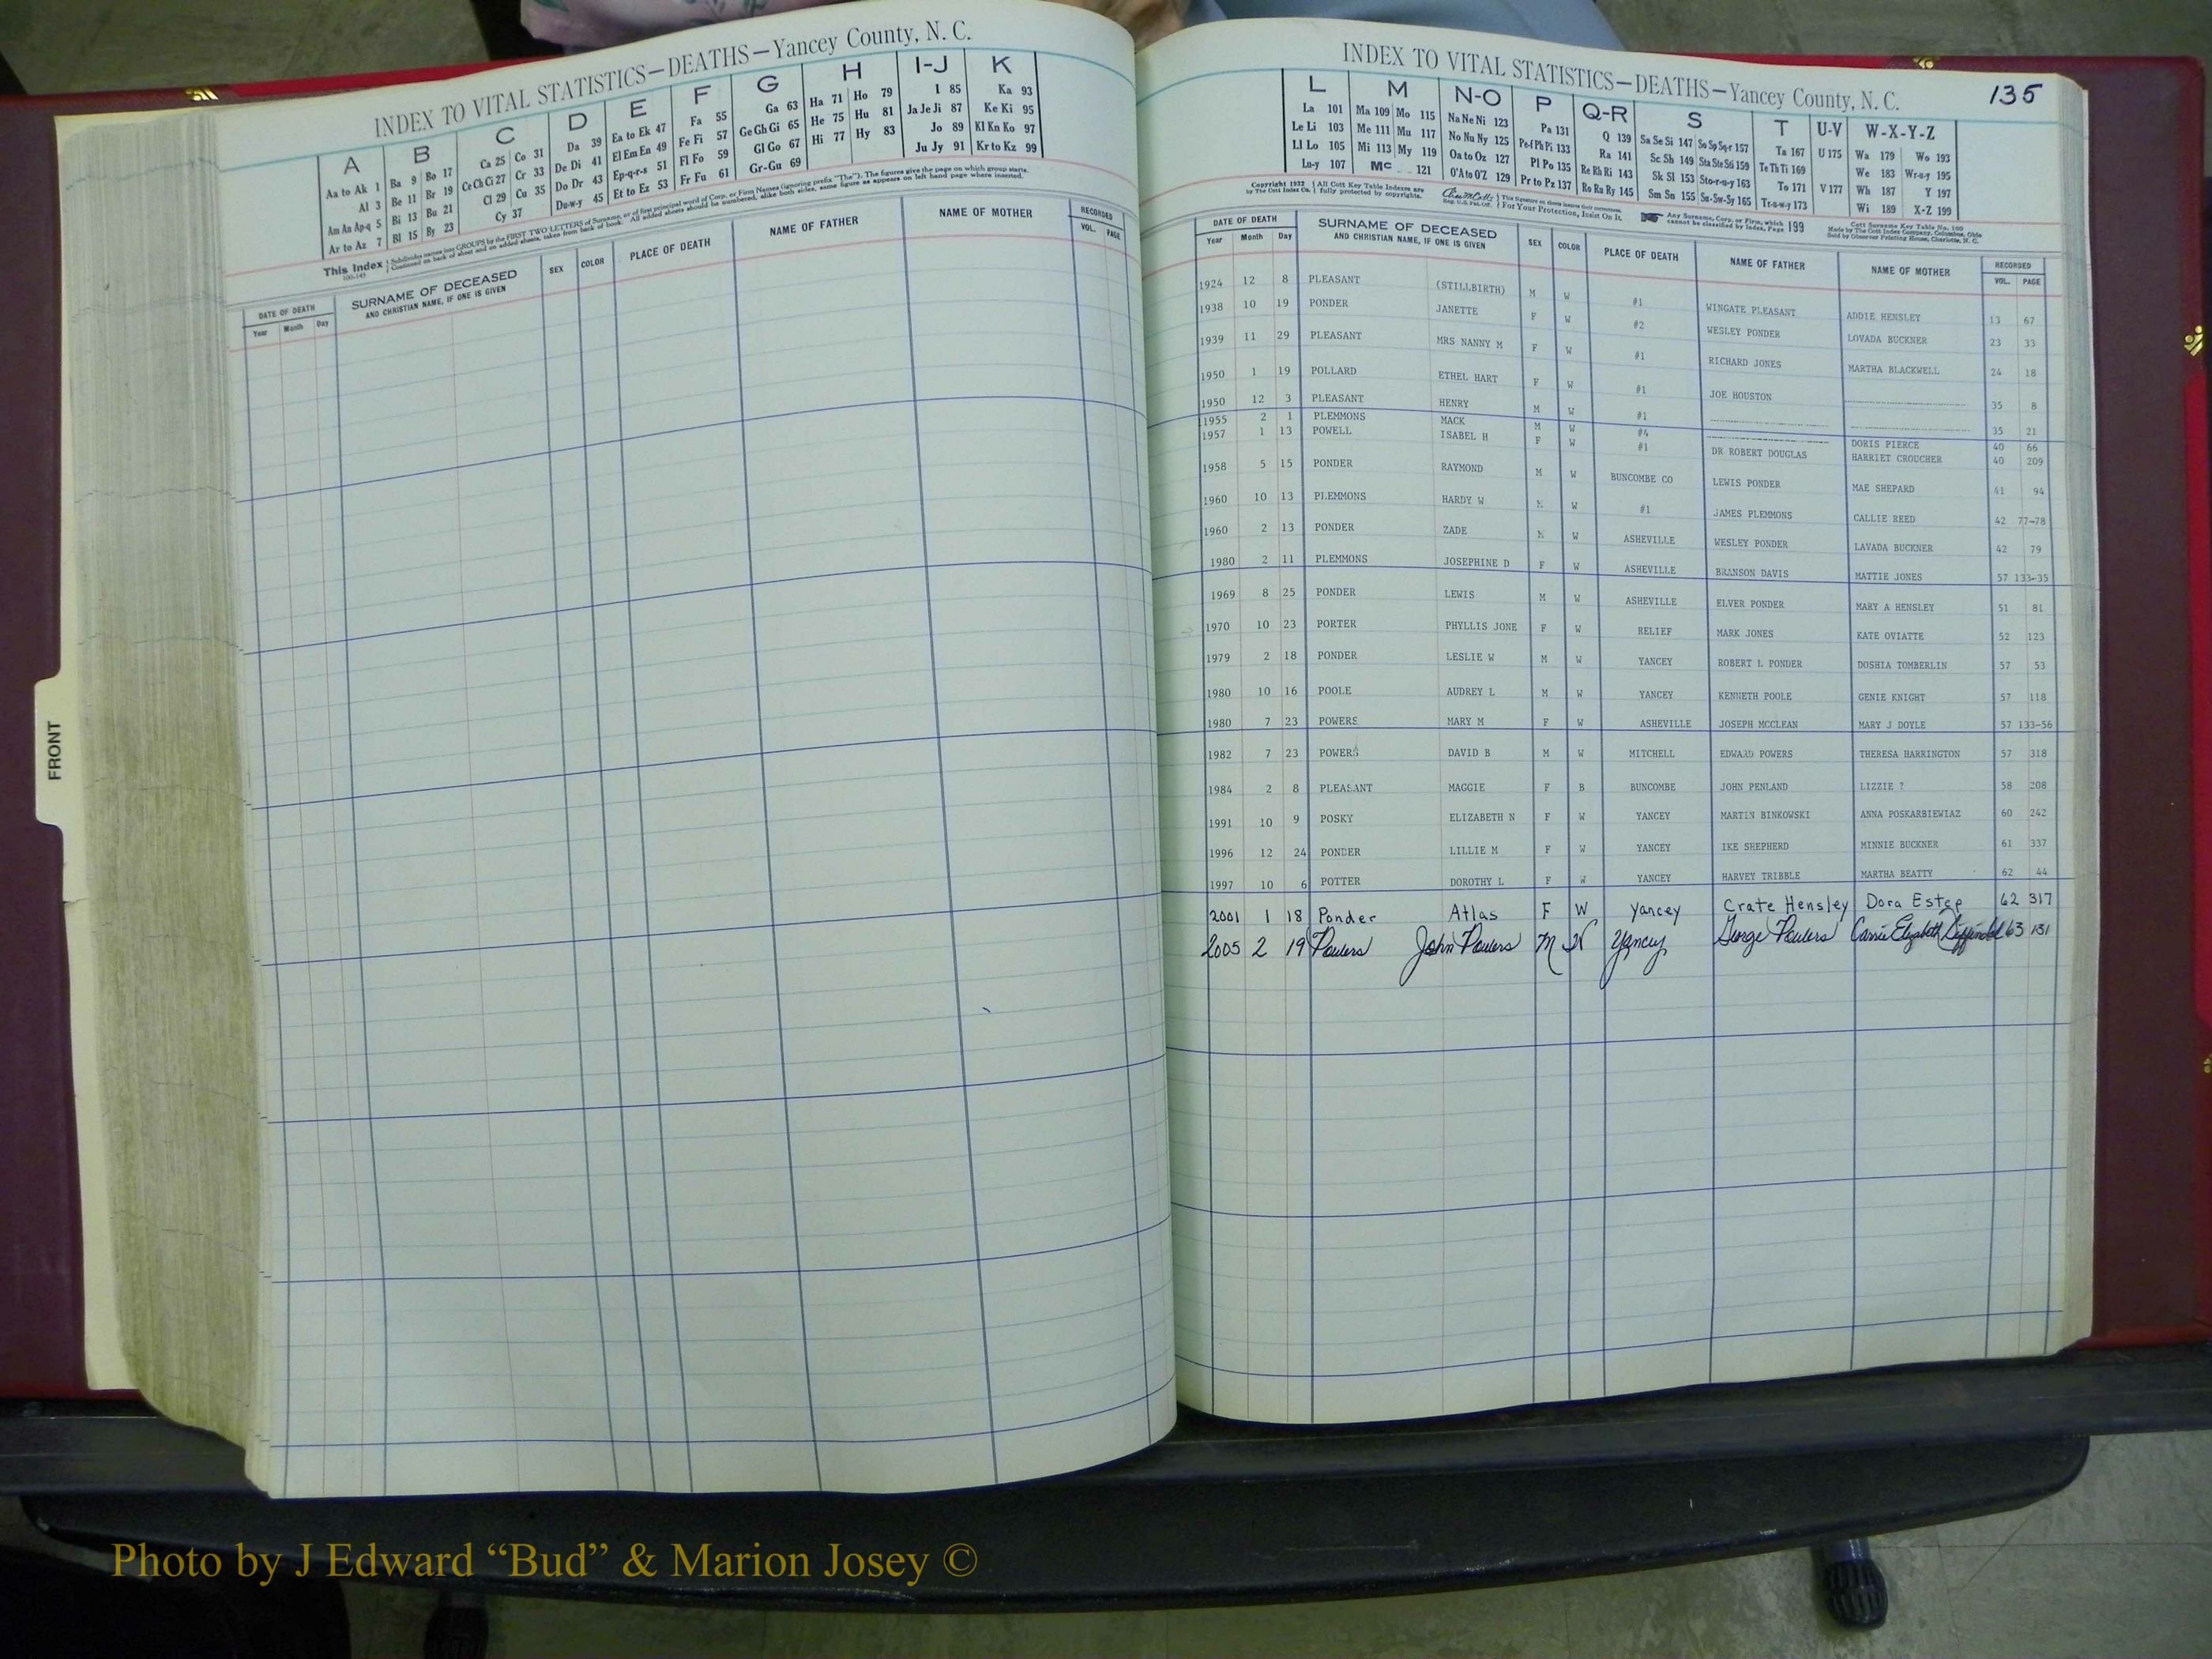 INDEX TO VITAL STATISTICS—DEATHS—Yancey County, N. C.
A B C D E F G H I-J K
Aa to Ak 1 Ba 9 Bo 17 Ca 25 Co 31 Da 39 Ea to Ek 47 Fa 55 Ga 63 Ha 71 Ho 79 I 85 Ka 93
Al 3 Be 11 Br 19 Ce Ch Ci 27 Cr 33 De Di 41 El Em En 49 Fe Fi 57 Ge Gh Gi 65 He 75 Hu 81 Ja Je Ji 87 Ke Ki 95
Am An Ap-q 5 Bi 13 Bu 21 Cl 29 Cu 35 Do Dr 43 Ep-q-r-s 51 Fl Fo 59 Gl Go 67 Hi 77 Hy 83 Jo 89 Kl Kn Ko 97
Ar to Az 7 Bl 15 By 23 Cy 37 Du-w-y 45 Et to Ez 53 Fr Fu 61 Gr-Gu 69 Ju Jy 91 Kr to Kz 99
This Index
DATE OF DEATH SURNAME OF DECEASED SEX COLOR PLACE OF DEATH NAME OF FATHER NAME OF MOTHER RECORDED
Year Month Day AND CHRISTIAN NAME, IF ONE IS GIVEN VOL. PAGE
FRONT
INDEX TO VITAL STATISTICS—DEATHS—Yancey County, N. C. 135
L M N-O P Q-R S T U-V W-X-Y-Z
La 101 Ma 109 Mo 115 Na Ne Ni 123 Pa 131 Q 139 Sa Se Si 147 So Sp Sq-r 157 Ta 167 U 175 Wa 179 Wo 193
Le Li 103 Me 111 Mu 117 No Nu Ny 125 Pe-f Ph Pi 133 Ra 141 Sc Sh 149 Sta Ste Sti 159 Te Th Ti 169 We 183 Wr-u-y 195
Ll Lo 105 Mi 113 My 119 Oa to Oz 127 Pl Po 135 Re Rh Ri 143 Sk Sl 153 Sto-r-u-y 163 To 171 V 177 Wh 187 Y 197
Lu-y 107 Mc 121 O'A to O'Z 129 Pr to Pz 137 Ro Ru Ry 145 Sm Sn 155 Su-Sw-Sy 165 Tr-u-w-y 173 Wi 189 X-Z 199
Copyright 1922 All Cott Key Table Indexes are For Your Protection, Insist On It. Any Surname, Corp. or Firm, which
by The Cott Index Co. fully protected by copyrights. cannot be classified by Index, Page 199
DATE OF DEATH SURNAME OF DECEASED SEX COLOR PLACE OF DEATH NAME OF FATHER NAME OF MOTHER RECORDED
Year Month Day AND CHRISTIAN NAME, IF ONE IS GIVEN VOL. PAGE
1924 12 8 PLEASANT (STILLBIRTH) M W #1 WINGATE PLEASANT ADDIE HENSLEY 13 67
1938 10 19 PONDER JANETTE F W #2 WESLEY PONDER LOVADA BUCKNER 23 33
1939 11 29 PLEASANT MRS NANNY M F W #1 RICHARD JONES MARTHA BLACKWELL 24 18
1950 1 19 POLLARD ETHEL HART F W #1 JOE HOUSTON 35 8
1950 12 3 PLEASANT HENRY M W #1 35 21
1955 2 1 PLEMMONS MACK M W #4 DORIS PIERCE 40 66
1957 1 13 POWELL ISABEL H F W #1 DR ROBERT DOUGLAS HARRIET CROUCHER 40 209
1958 5 15 PONDER RAYMOND M W BUNCOMBE CO LEWIS PONDER MAE SHEPARD 41 94
1960 10 13 PLEMMONS HARDY W M W #1 JAMES PLEMMONS CALLIE REED 42 77-78
1960 2 13 PONDER ZADE M W ASHEVILLE WESLEY PONDER LAVADA BUCKNER 42 79
1980 2 11 PLEMMONS JOSEPHINE D F W ASHEVILLE BRANSON DAVIS MATTIE JONES 57 133-35
1969 8 25 PONDER LEWIS M W ASHEVILLE ELVER PONDER MARY A HENSLEY 51 81
1970 10 23 PORTER PHYLLIS JONE F W RELIEF MARK JONES KATE OVIATTE 52 123
1979 2 18 PONDER LESLIE W M W YANCEY ROBERT L PONDER DOSHIA TOMBERLIN 57 53
1980 10 16 POOLE AUDREY L M W YANCEY KENNETH POOLE GENIE KNIGHT 57 118
1980 7 23 POWERS MARY M F W ASHEVILLE JOSEPH MCCLEAN MARY J DOYLE 57 133-56
1982 7 23 POWERS DAVID B M W MITCHELL EDWARD POWERS THERESA HARRINGTON 57 318
1984 2 8 PLEASANT MAGGIE F B BUNCOMBE JOHN PENLAND LIZZIE ? 58 208
1991 10 9 POSKY ELIZABETH N F W YANCEY MARTIN BINKOWSKI ANNA POSKARBIEWIAZ 60 242
1996 12 24 PONDER LILLIE M F W YANCEY IKE SHEPHERD MINNIE BUCKNER 61 337
1997 10 6 POTTER DOROTHY L F W YANCEY HARVEY TRIBBLE MARTHA BEATTY 62 44
2001 1 18 Ponder Atlas F W Yancey Crate Hensley Dora Estep 62 317
2005 2 19 Powers John Powers M W Yancey George Powers Carrie Elizabeth 63 131
Photo by J Edward “Bud” & Marion Josey ©